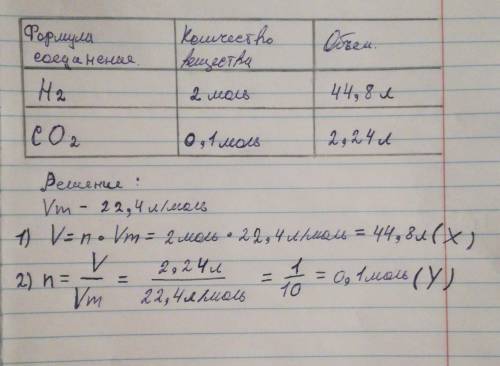 Формула соединения | Количество вещества | Объем.
H₂ | 2 моль | 44,8 л
CO₂ | 0,1 моль | 2,24 л
Решение :
Vm - 22,4 л/моль
1) V = n • Vm = 2 моль • 22,4 л/моль = 44,8 л (X)
2) n = V/Vm = 2,24 л / 22,4 л/моль = 1/10 = 0,1 моль (Y)